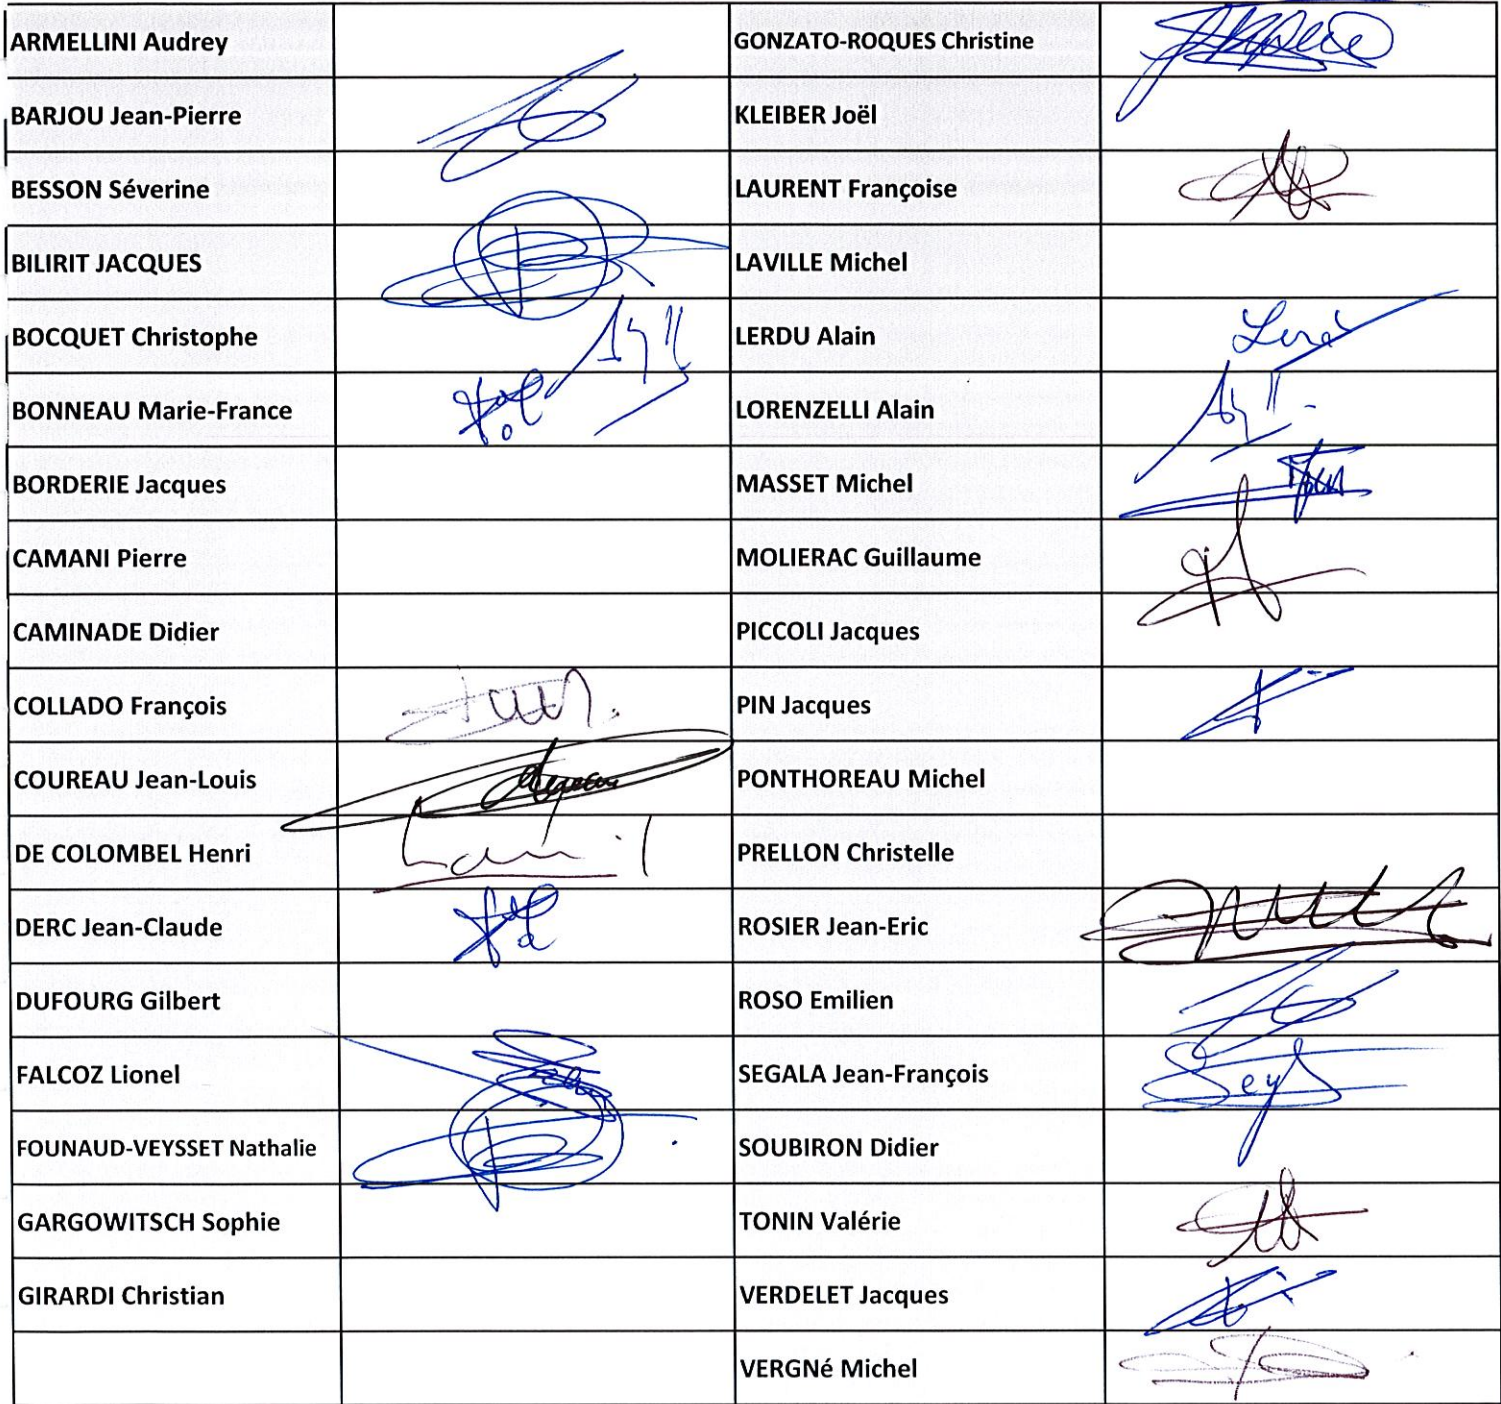 ARMELLINI Audrey
GONZATO-ROQUES Christine
BARJOU Jean-Pierre
KLEIBER Joël
BESSON Séverine
LAURENT Françoise
BILIRIT JACQUES
LAVILLE Michel
BOCQUET Christophe
LERDU Alain
BONNEAU Marie-France
LORENZELLI Alain
BORDERIE Jacques
MASSET Michel
CAMANI Pierre
MOLIERAC Guillaume
CAMINADE Didier
PICCOLI Jacques
COLLADO François
PIN Jacques
COUREAU Jean-Louis
PONTHOREAU Michel
DE COLOMBEL Henri
PRELLON Christelle
DERC Jean-Claude
ROSIER Jean-Eric
DUFOURG Gilbert
ROSO Emilien
FALCOZ Lionel
SEGALA Jean-François
FOUNAUD-VEYSSET Nathalie
SOUBIRON Didier
GARGOWITSCH Sophie
TONIN Valérie
GIRARDI Christian
VERDELET Jacques
VERGNé Michel